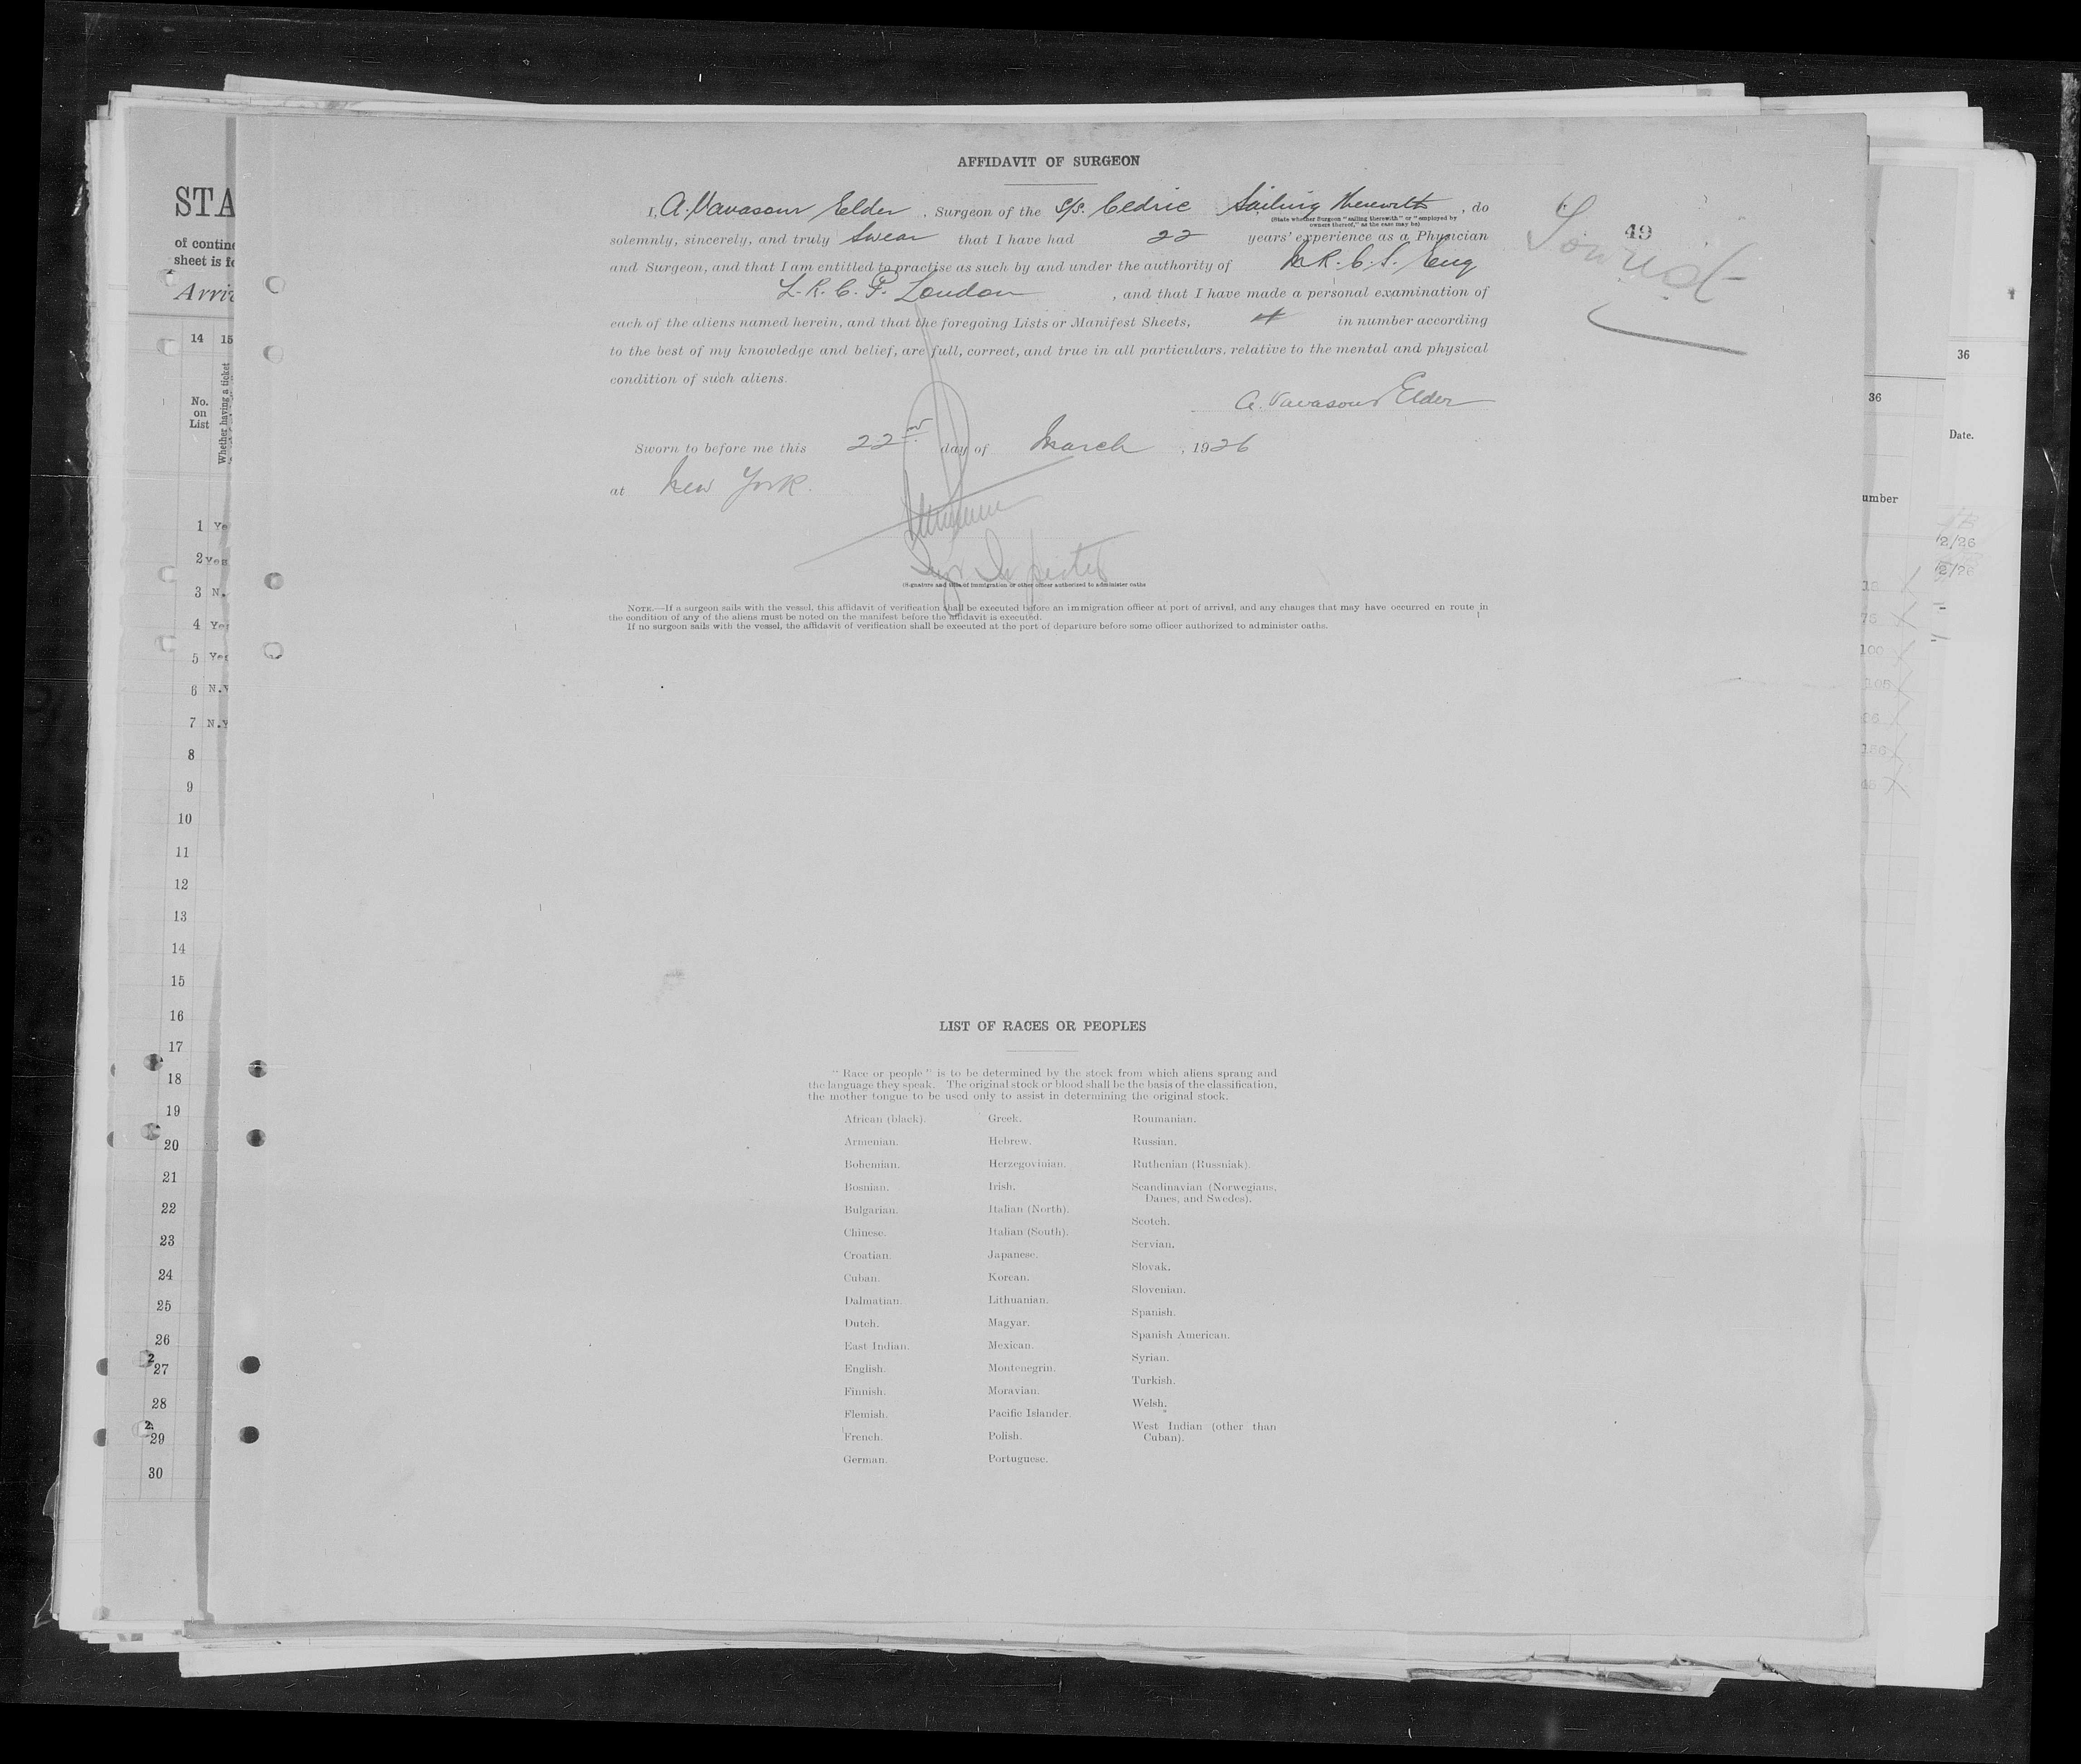 AFFIDAVIT OF SURGEON
I, A. Vavasour Elder, Surgeon of the S/S. Cedric Sailing therewith, do
(State whether Surgeon "sailing therewith" or "employed by
owners thereof," as the case may be)
solemnly, sincerely, and truly Swear that I have had 22 years' experience as a Physician
and Surgeon, and that I am entitled to practise as such by and under the authority of M.R.C.S. Eng
L.R.C.P. London, and that I have made a personal examination of
each of the aliens named herein, and that the foregoing Lists or Manifest Sheets, 4 in number according
to the best of my knowledge and belief, are full, correct, and true in all particulars, relative to the mental and physical
condition of such aliens.
A. Vavasour Elder
Sworn to before me this 22nd day of March, 1926
at New York.
Inspector
(Signature and title of immigration or other officer authorized to administer oaths
NOTE.—If a surgeon sails with the vessel, this affidavit of verification shall be executed before an immigration officer at port of arrival, and any changes that may have occurred en route in
the condition of any of the aliens must be noted on the manifest before the affidavit is executed.
If no surgeon sails with the vessel, the affidavit of verification shall be executed at the port of departure before some officer authorized to administer oaths.
49
Tourist
LIST OF RACES OR PEOPLES
"Race or people" is to be determined by the stock from which aliens sprang and
the language they speak. The original stock or blood shall be the basis of the classification,
the mother tongue to be used only to assist in determining the original stock.
African (black).
Armenian.
Bohemian.
Bosnian.
Bulgarian.
Chinese.
Croatian.
Cuban.
Dalmatian.
Dutch.
East Indian.
English.
Finnish.
Flemish.
French.
German.
Greek.
Hebrew.
Herzegovinian.
Irish.
Italian (North).
Italian (South).
Japanese.
Korean.
Lithuanian.
Magyar.
Mexican.
Montenegrin.
Moravian.
Pacific Islander.
Polish.
Portuguese.
Roumanian.
Russian.
Ruthenian (Russniak).
Scandinavian (Norwegians,
Danes, and Swedes).
Scotch.
Servian.
Slovak.
Slovenian.
Spanish.
Spanish American.
Syrian.
Turkish.
Welsh.
West Indian (other than
Cuban).
STA
of contine
sheet is fo
Arri
14 15
No.
on
List
Whether having a ticket
1 Ye
2 Yes
3 N.
4 Yes
5 Yes
6 N.Y
7 N.Y
8
9
10
11
12
13
14
15
16
17
18
19
20
21
22
23
24
25
26
27
28
29
30
36
36
Date.
umber
2/26
2/26
100